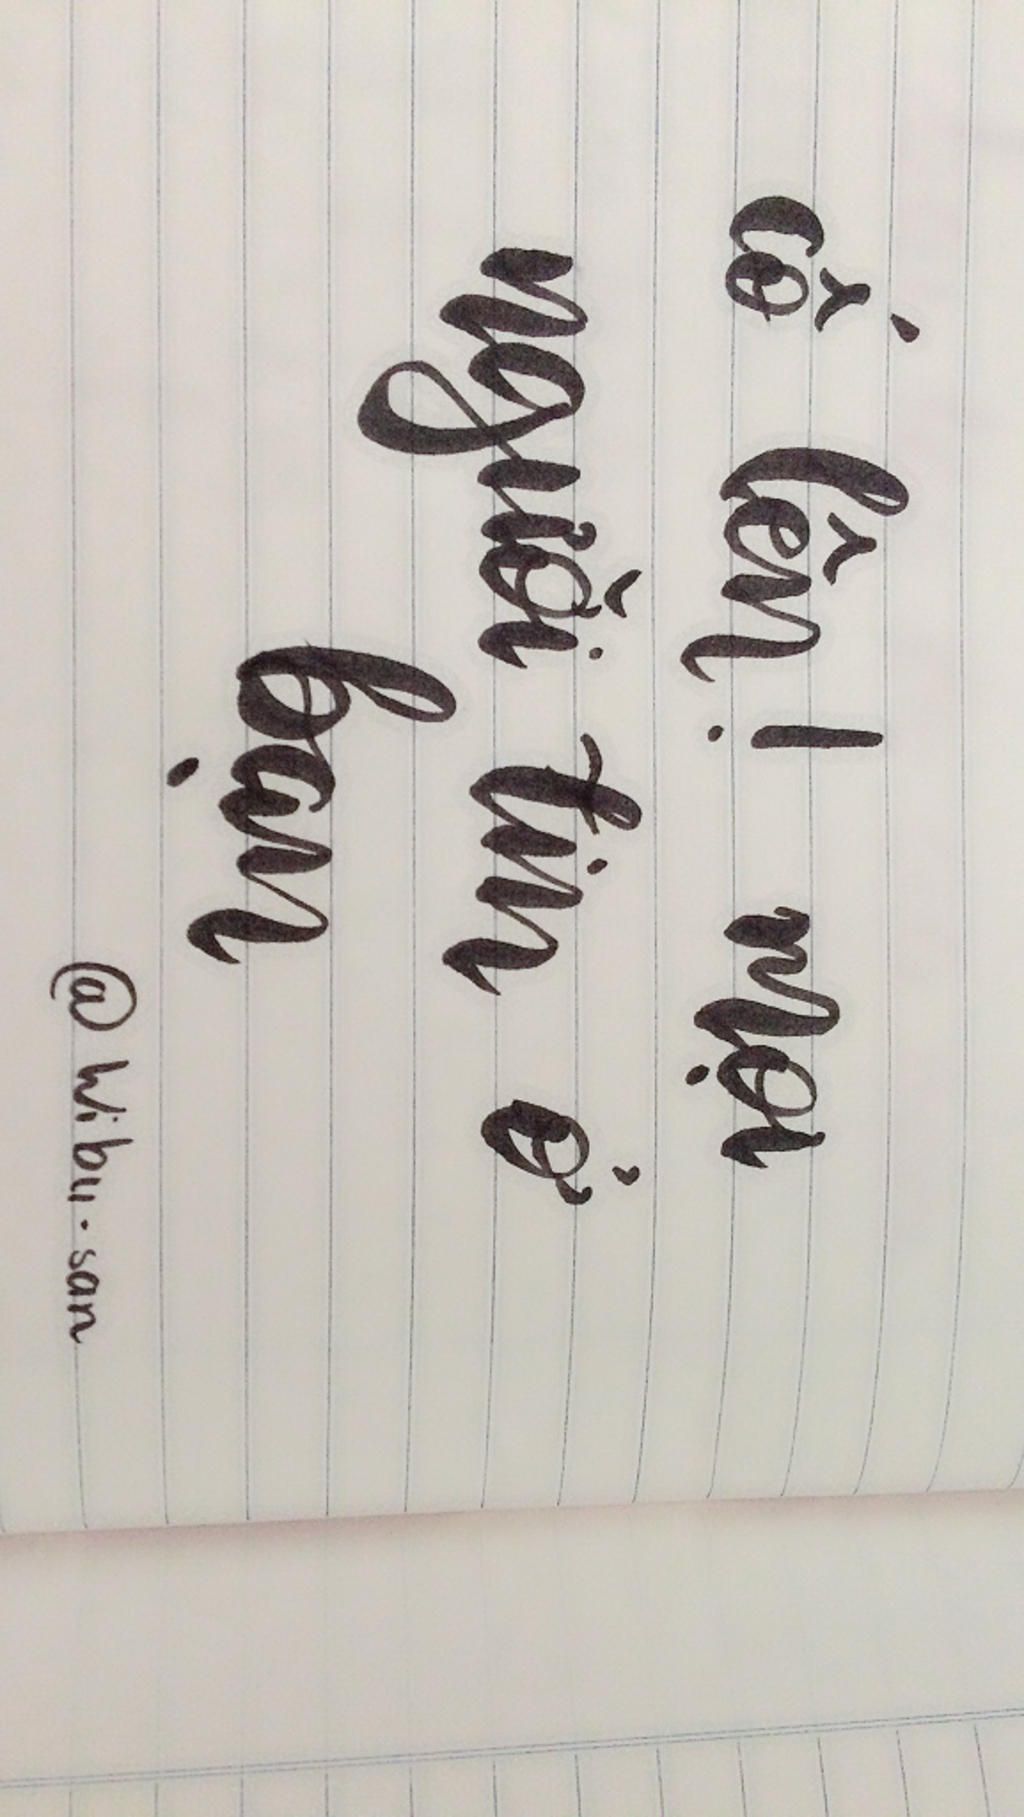 cố lên! mọi
người tin ở
bạn
@wibu.san